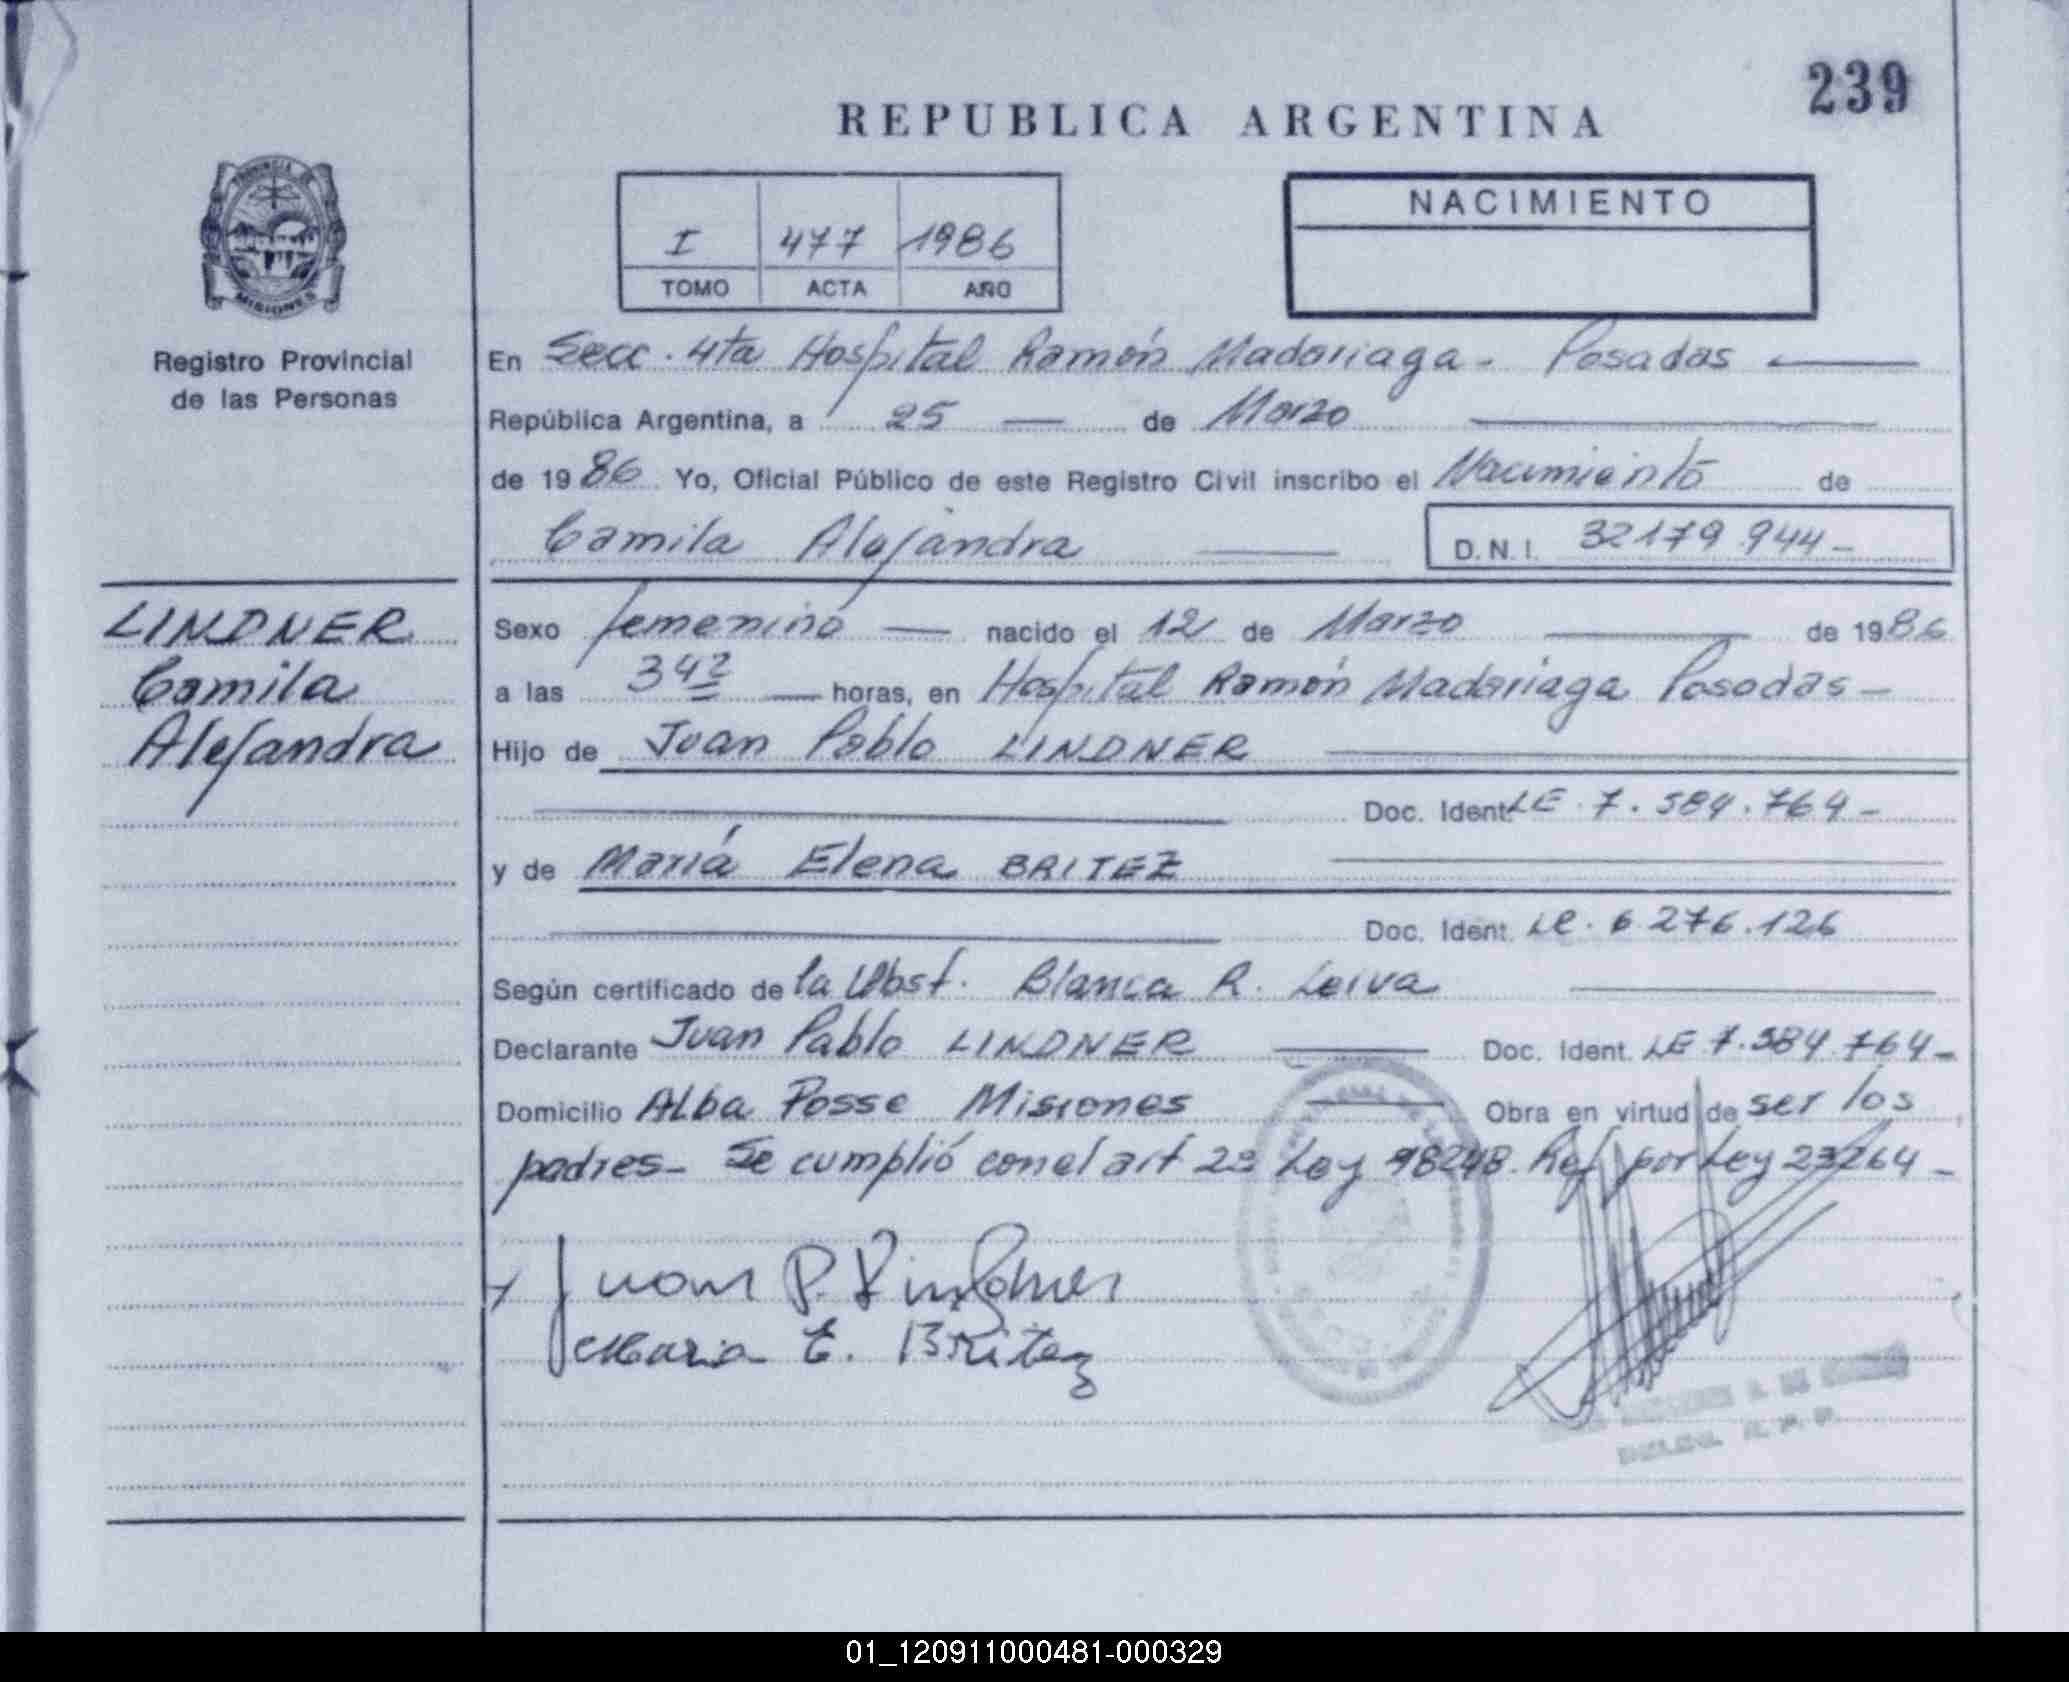 239
REPUBLICA ARGENTINA
I 477 1986
TOMO ACTA AÑO
NACIMIENTO
PROVINCIA DE
MISIONES
Registro Provincial
de las Personas
En Secc. 4ta Hospital Ramón Madariaga - Posadas
República Argentina, a 25 de Marzo
de 1986 Yo, Oficial Público de este Registro Civil inscribo el Nacimiento de
Camila Alejandra D.N.I. 32179.944-
LINDNER
Camila
Alejandra
Sexo femenino nacido el 12 de Marzo de 1986
a las 3 42 horas, en Hospital Ramón Madariaga Posadas-
Hijo de Juan Pablo LINDNER
Doc. Ident. LE. 7.584.764-
y de María Elena BRITEZ
Doc. Ident. LC. 6.276.126
Según certificado de la Obst. Blanca R. Leiva
Declarante Juan Pablo LINDNER Doc. Ident. LE 7.584.764-
Domicilio Alba Posse Misiones Obra en virtud de ser los
padres- Se cumplió con el art 2º Ley 18248. Ref por Ley 23264-
Juan P. Lindner
Maria E. Britez
01_120911000481-000329